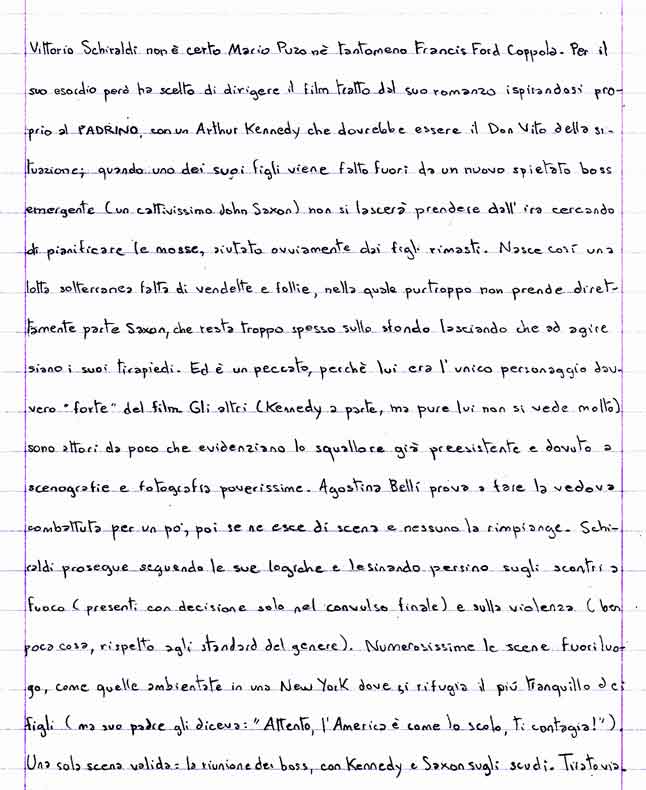 Vittorio Schiraldi non è certo Mario Puzo nè tantomeno Francis Ford Coppola. Per il
suo esordio però ha scelto di dirigere il film tratto dal suo romanzo ispirandosi pro-
prio al PADRINO, con un Arthur Kennedy che dovrebbe essere il Don Vito della si-
tuazione; quando uno dei suoi figli viene fatto fuori da un nuovo spietato boss
emergente (un cattivissimo John Saxon) non si lascerà prendere dall' ira cercando
di pianificare le mosse, aiutato ovviamente dai figli rimasti. Nasce così una
lotta sotterranea fatta di vendette e follie, nella quale purtroppo non prende diret-
tamente parte Saxon, che resta troppo spesso sullo sfondo lasciando che ad agire
siano i suoi tirapiedi. Ed è un peccato, perchè lui era l' unico personaggio dav-
vero "forte" del film. Gli altri (Kennedy a parte, ma pure lui non si vede molto)
sono attori da poco che evidenziano lo squallore già preesistente e dovuto a
scenografie e fotografia poverissime. Agostina Belli prova a fare la vedova
combattuta per un pò, poi se ne esce di scena e nessuno la rimpiange. Schi-
raldi prosegue seguendo le sue logiche e lesinando persino sugli scontri a
fuoco (presenti con decisione solo nel convulso finale) e sulla violenza (ben
poca cosa, rispetto agli standard del genere). Numerosissime le scene fuoriluo-
go, come quelle ambientate in una New York dove si rifugia il più tranquillo dei
figli (ma suo padre gli diceva: "Attento, l'America è come lo scolo, ti contagia!").
Una sola scena valida: la riunione dei boss, con Kennedy e Saxon sugli scudi. Tirato via.